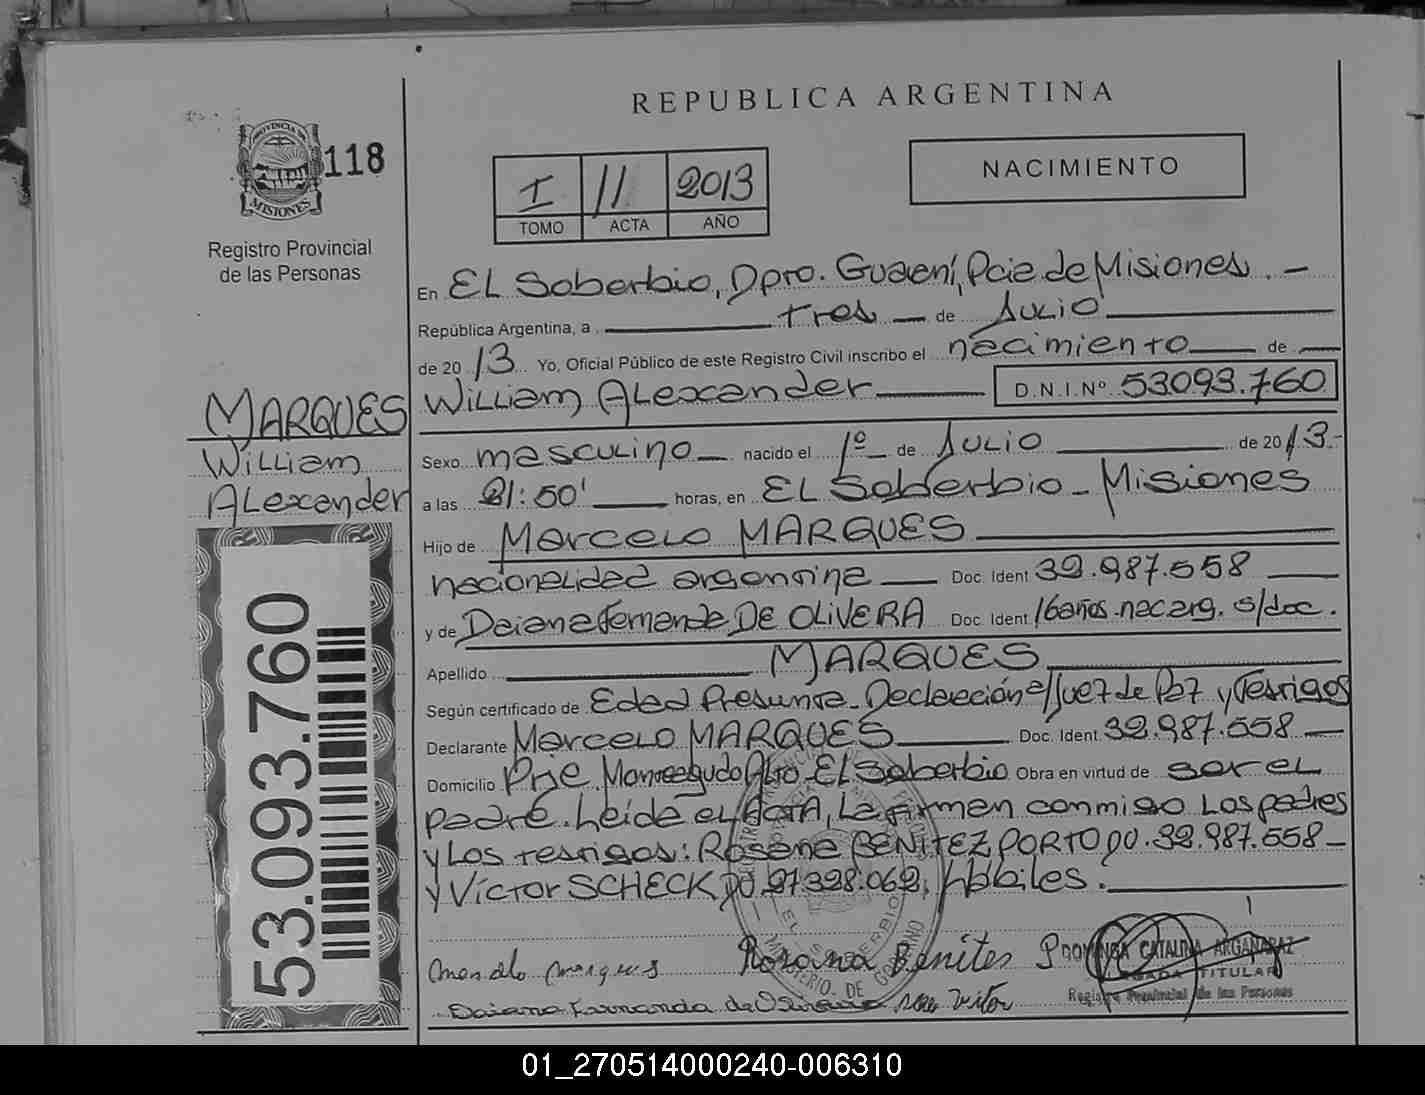 REPUBLICA ARGENTINA
PROVINCIA DE
MISIONES
118
Registro Provincial
de las Personas
I 11 2013
TOMO ACTA AÑO
NACIMIENTO
En EL Soberbio, Dpto. Guaraní, Pcia de Misiones. —
República Argentina, a tres — de JULIO
de 20 13 Yo, Oficial Público de este Registro Civil inscribo el nacimiento — de —
William ALexander — D.N.I.Nº 53093.760
MARQUES
William
ALexander
Sexo masculino — nacido el 1º — de JULIO — de 20 13.-
a las 21:50' — horas, en EL Soberbio - Misiones
Hijo de Marcelo MARQUES —
nacionalidad argentina — Doc. Ident 32.987.558 —
y de Daiana Fernanda DE OLIVERA Doc. Ident 16años.nac arg. s/doc.
Apellido — MARQUES —
Según certificado de Edad Presunta - Declaración a/Juez de Paz y Testigos
Declarante Marcelo MARQUES — Doc. Ident. 32.987.558 —
Domicilio Prje. Monteagudo Alto El Soberbio Obra en virtud de ser el
padre. Leída el ACTA, La firman conmigo Los padres
y Los testigos: Rosana BENITEZ PORTO DU. 32.987.558 —
y Víctor SCHECK DU. 27.328.062, hábiles. —
53.093.760
MINISTERIO DE GOBIERNO
EL SOBERBIO
Rosana Benites P
DOMINGA CATALINA ARGAÑARAZ
TITULAR
Registro Provincial de las Personas
Daiana Fernanda de Olivera
01_270514000240-006310